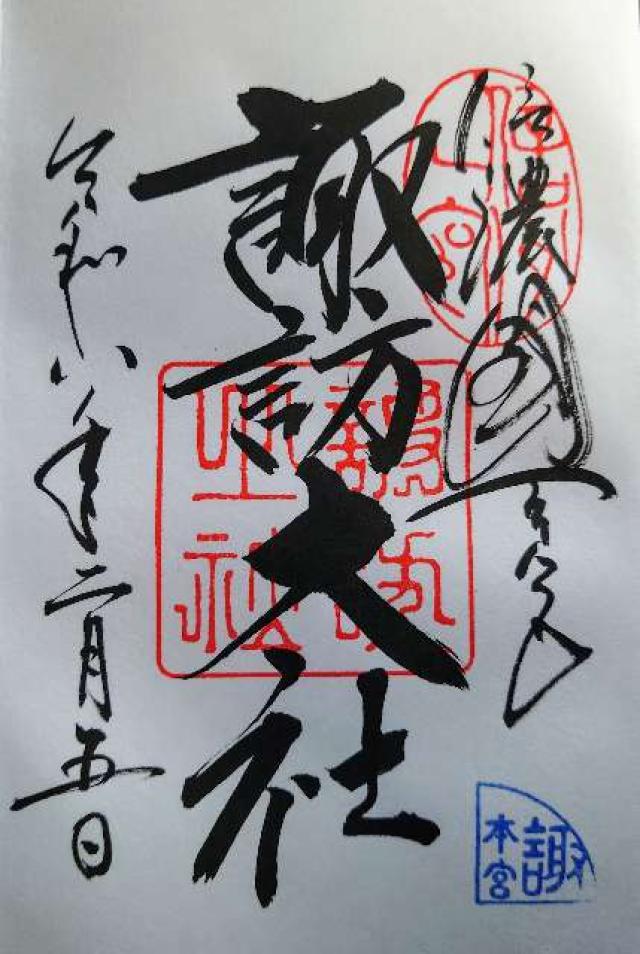 信濃國一之宮
諏訪大社
令和八年二月五日
諏訪
大社
諏
本宮